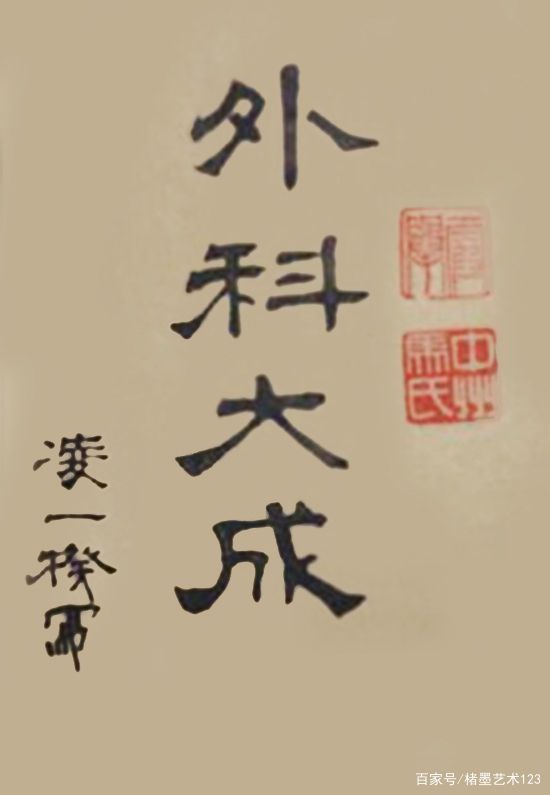 外科大成
凌一揆冩
中州
氏
百家号/楮墨艺术123